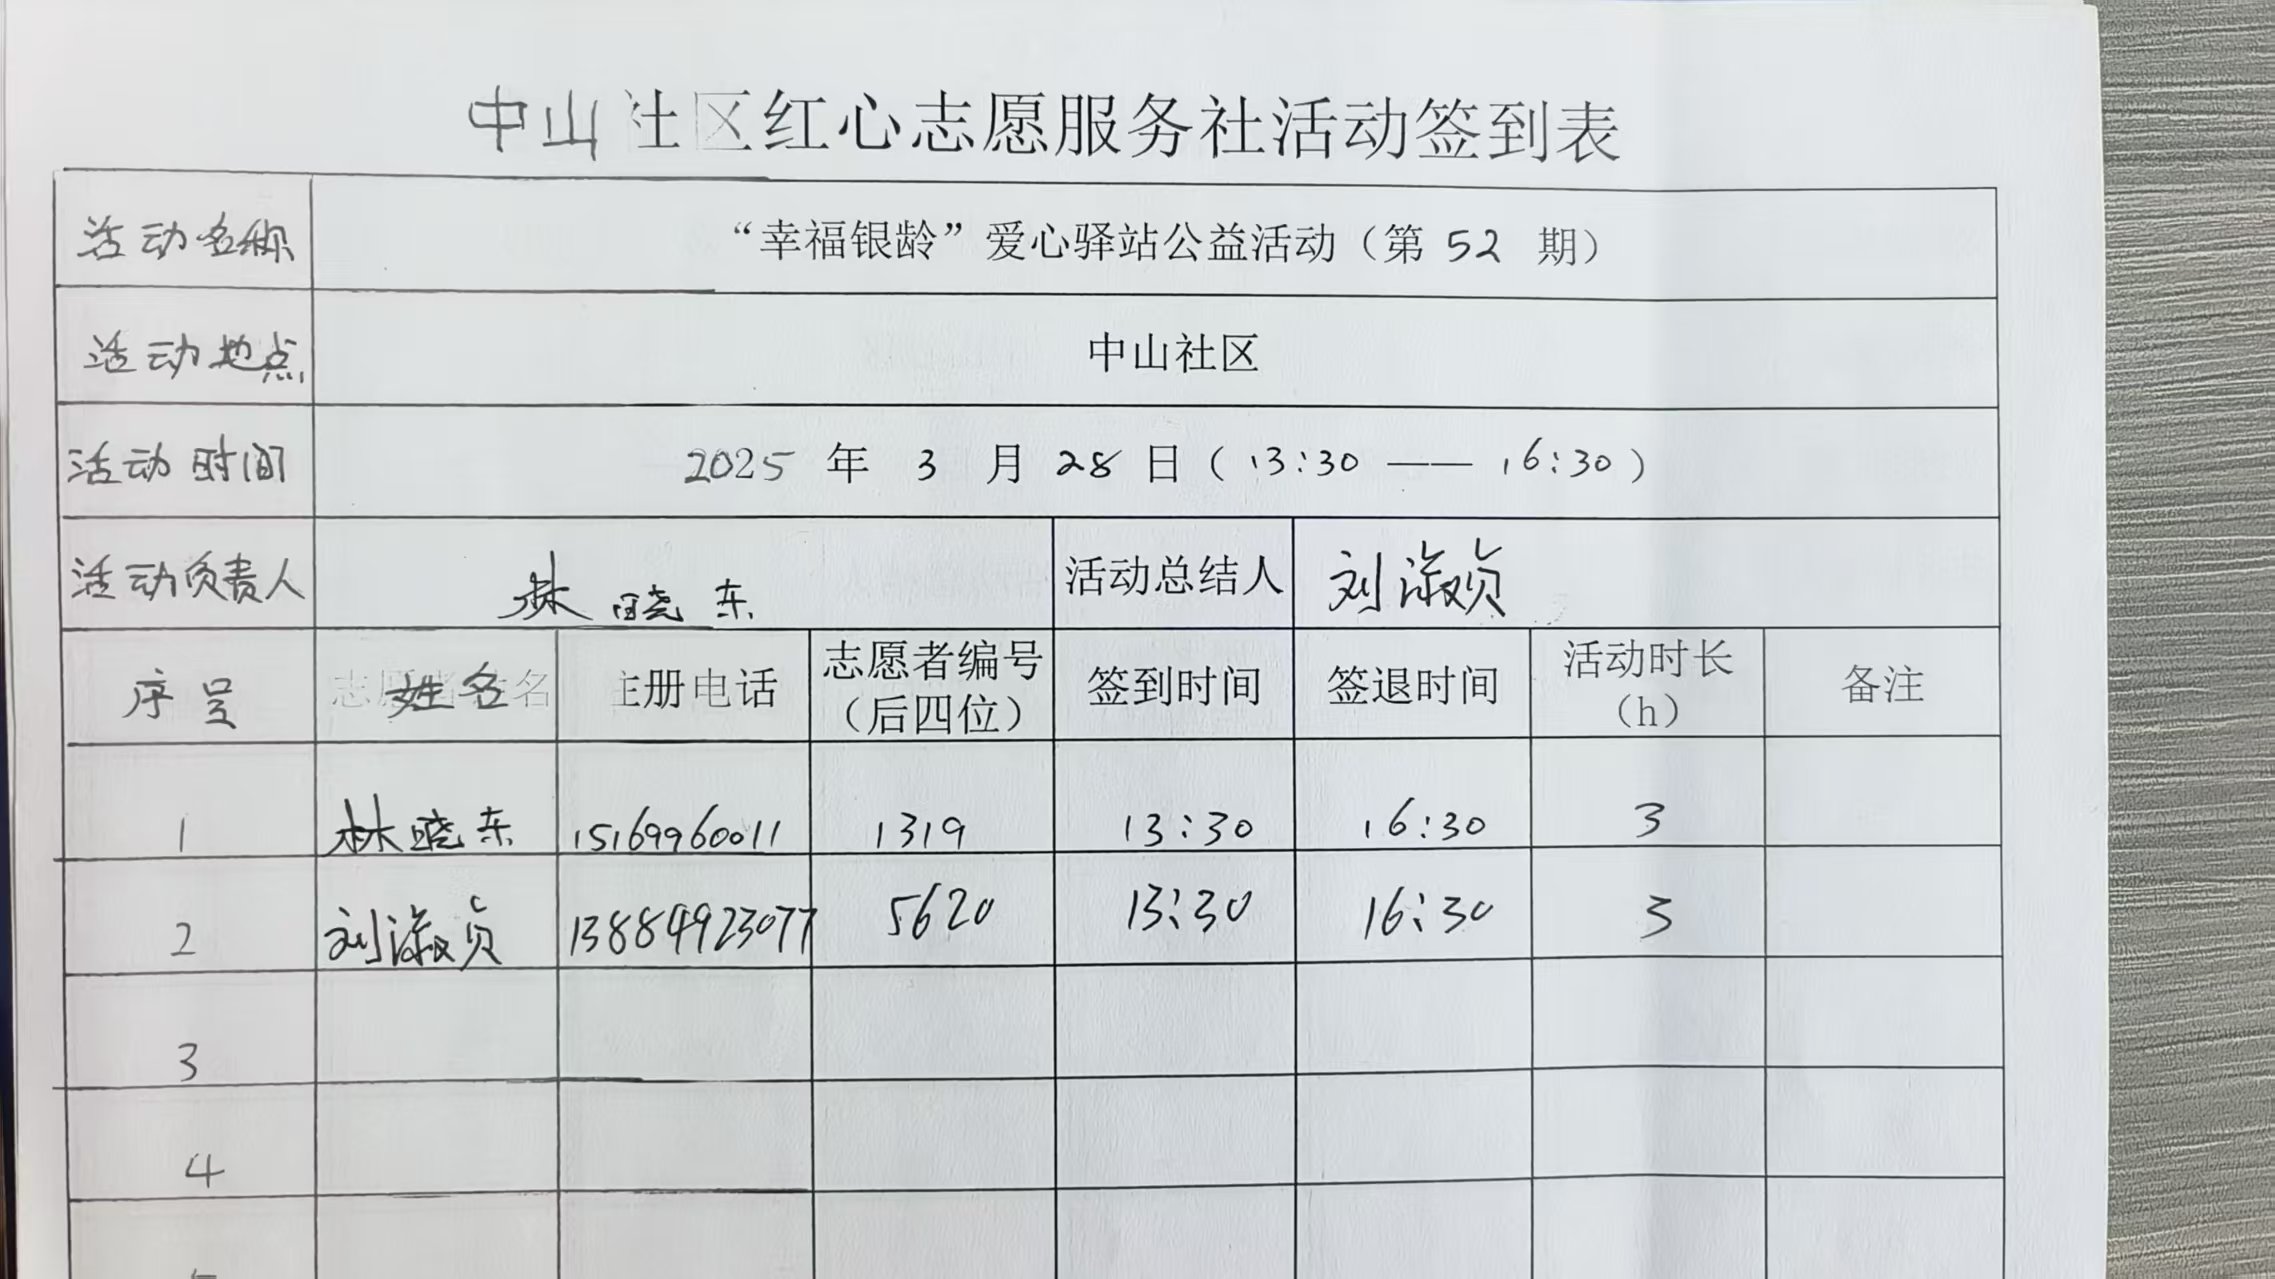 中山社区红心志愿服务社活动签到表
活动名称 “幸福银龄”爱心驿站公益活动（第 52 期）
活动地点 中山社区
活动时间 2025 年 3 月 28 日（13:30 —— 16:30）
活动负责人 林晓东 活动总结人 刘淑贞
序号 姓名 注册电话 志愿者编号（后四位） 签到时间 签退时间 活动时长（h） 备注
1 林晓东 15169960011 1319 13:30 16:30 3
2 刘淑贞 13884923077 5620 13:30 16:30 3
3
4